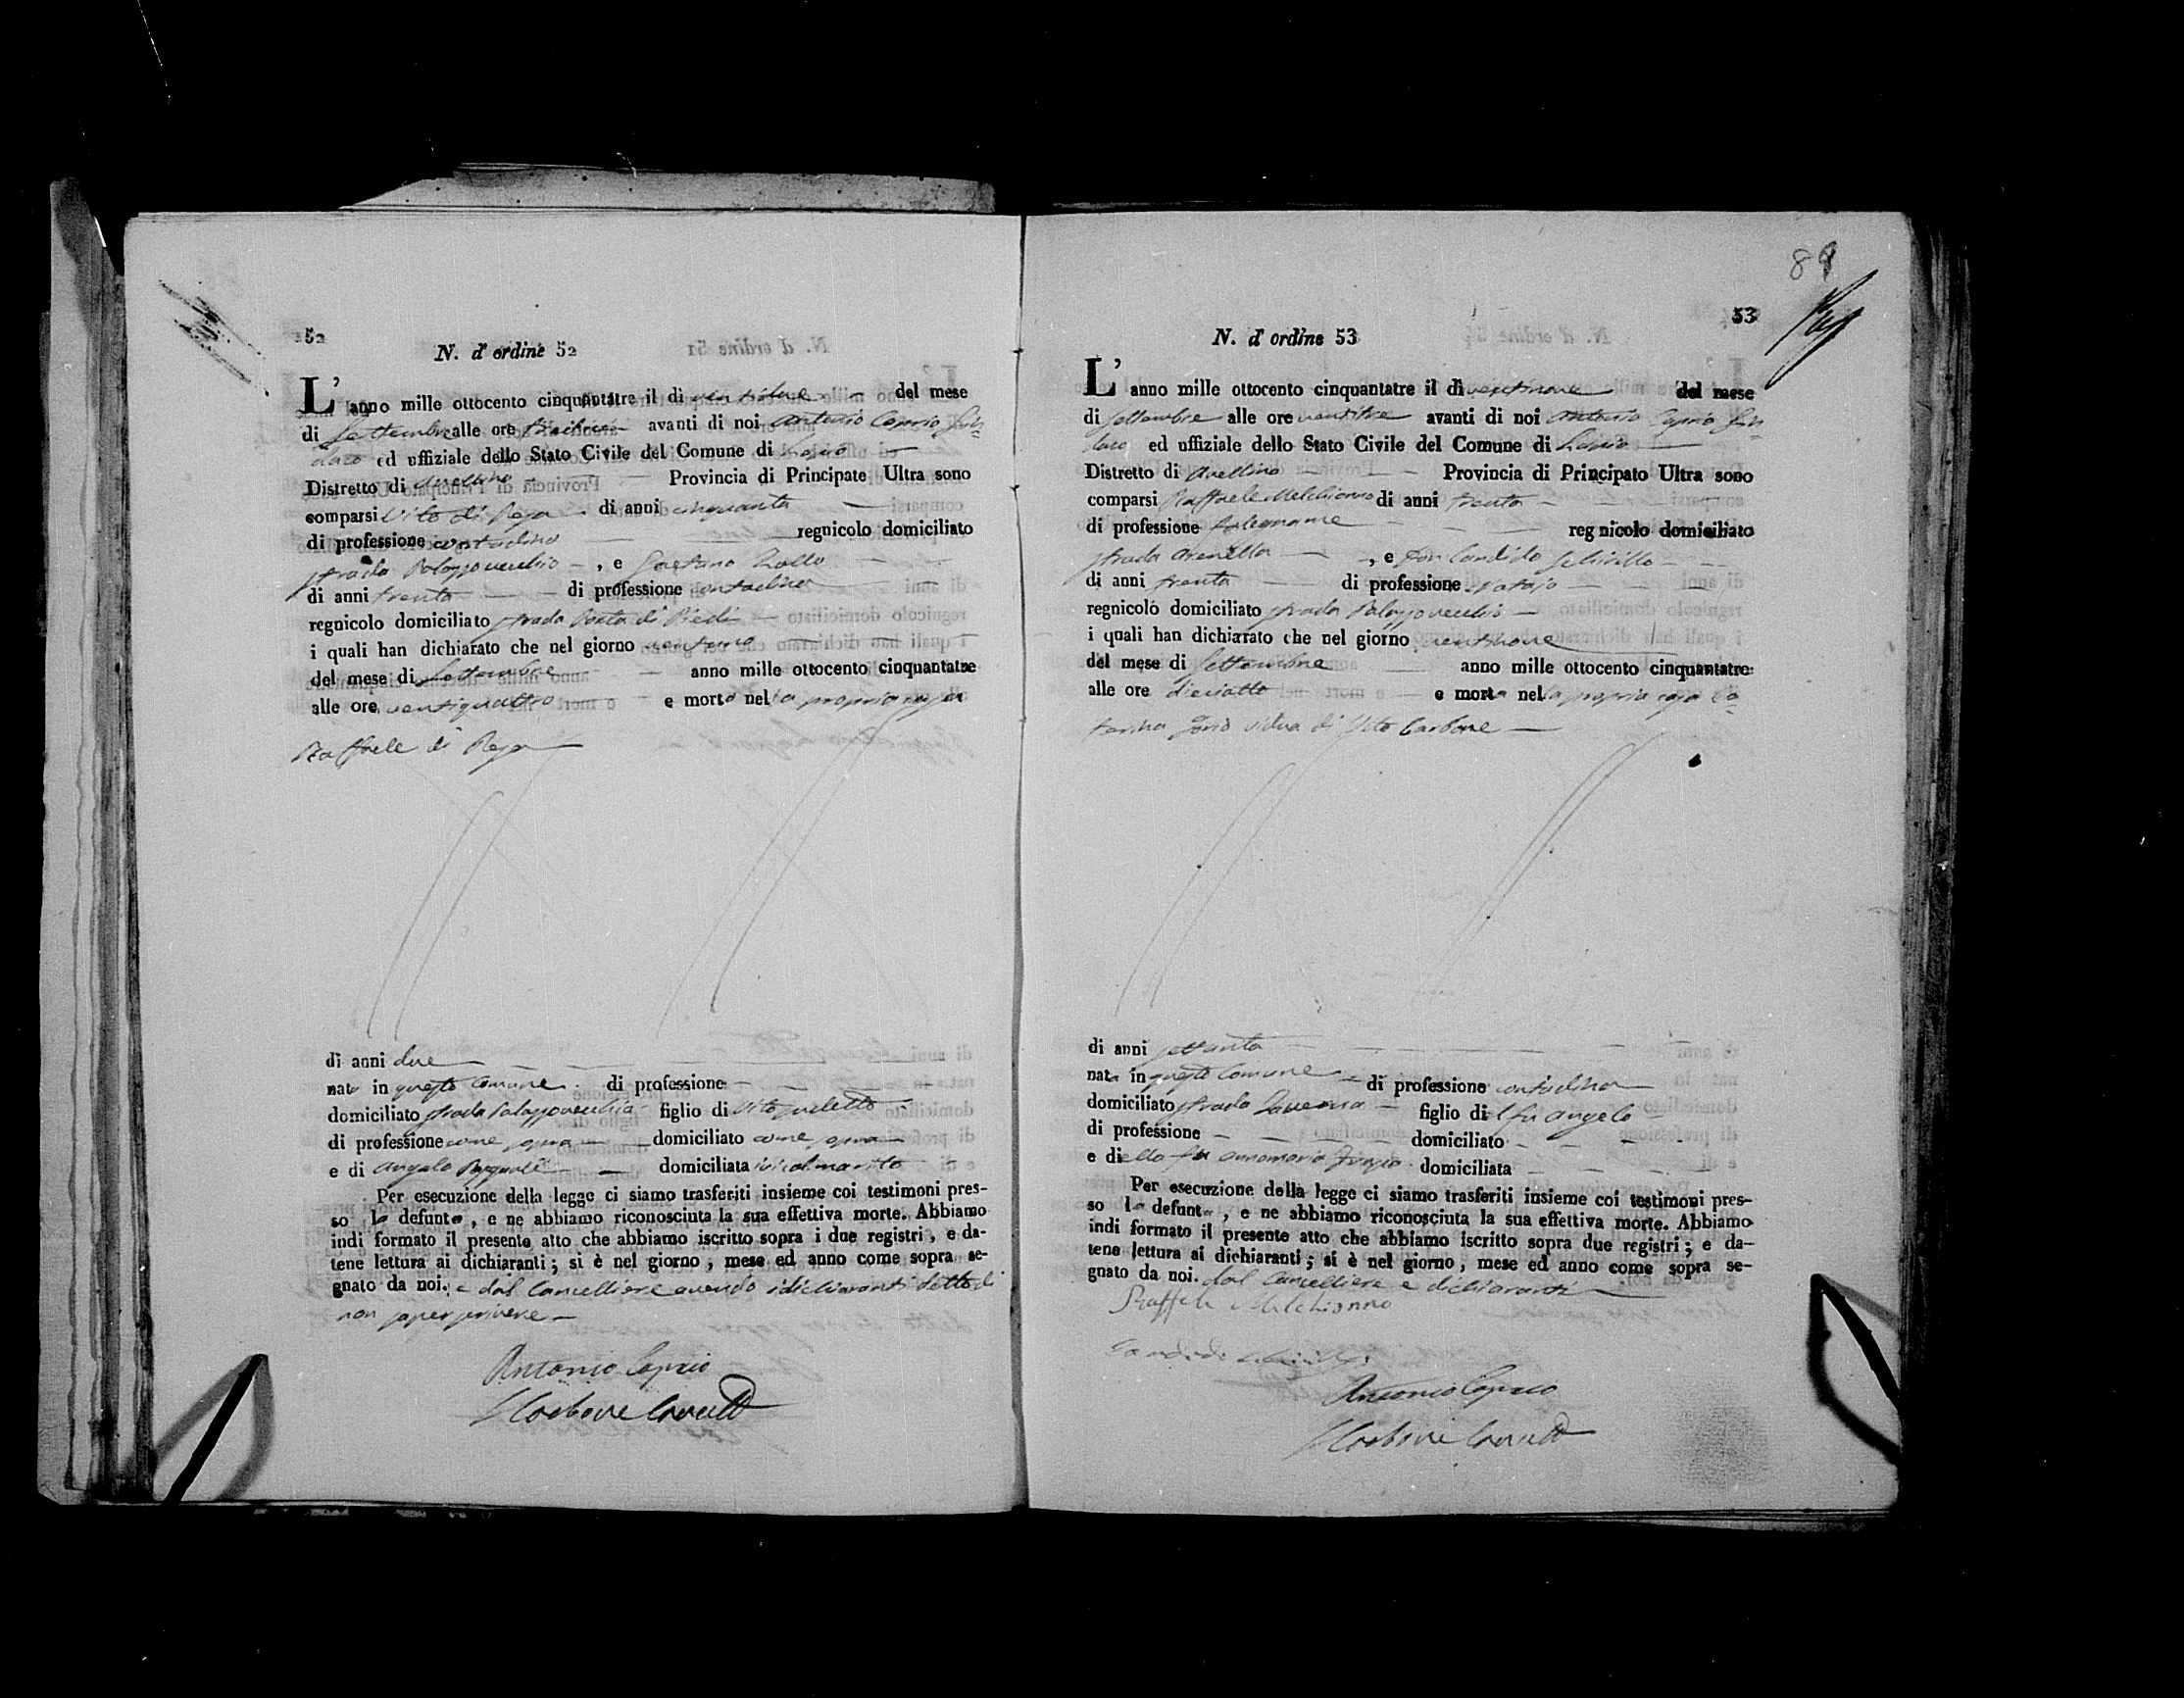 52
N. d' ordine 52
L' anno mille ottocento cinquantatre il di del mese
di Settembre alle ore avanti di noi Antonio Caprio Sin=
daco ed uffiziale dello Stato Civile del Comune di Lapio
Distretto di Avellino Provincia di Principato Ultra sono
comparsi Vito di di anni cinquanta
di professione contadino regnicolo domiciliato
strada Palazzovecchio , e Gaetano
di anni trenta di professione contadino
regnicolo domiciliato strada Porta di
i quali han dichiarato che nel giorno
del mese di Settembre anno mille ottocento cinquantatre
alle ore ventiquattro e morto nella propria casa
Raffaele di
di anni due
nato in questo Comune di professione
domiciliato strada Palazzovecchio figlio di Vito
di professione come sopra domiciliato come sopra
e di Angela Pasquale domiciliata ivi col marito
Per esecuzione della legge ci siamo trasferiti insieme coi testimoni pres-
so lo defunto , e ne abbiamo riconosciuta la sua effettiva morte. Abbiamo
indi formato il presente atto che abbiamo iscritto sopra i due registri , e da-
tene lettura ai dichiaranti ; si è nel giorno , mese ed anno come sopra se-
gnato da noi. e dal Cancelliere avendo i dichiaranti detto di
non saper scrivere
Antonio Caprio
Carbone
89
53
N. d' ordine 53
L' anno mille ottocento cinquantatre il di ventinove del mese
di Settembre alle ore ventitre avanti di noi Antonio Caprio Sin=
daco ed uffiziale dello Stato Civile del Comune di Lapio
Distretto di Avellino Provincia di Principato Ultra sono
comparsi Raffaele Melchionno di anni trenta
di professione falegname regnicolo domiciliato
strada Arenella , e Don Candido
di anni trenta di professione Notajo
regnicolo domiciliato strada Palazzovecchio
i quali han dichiarato che nel giorno ventinove
del mese di Settembre anno mille ottocento cinquantatre
alle ore dieciotto e morta nella propria casa Ca=
terina vidua di Vito Carbone
di anni settanta
nata in questo Comune di professione contadina
domiciliato strada Taverna figlio del fu Angelo
di professione domiciliato
e di ella fu Annamaria domiciliata
Per esecuzione della legge ci siamo trasferiti insieme coi testimoni pres-
so la defunta , e ne abbiamo riconosciuta la sua effettiva morte. Abbiamo
indi formato il presente atto che abbiamo iscritto sopra due registri ; e da-
tene lettura ai dichiaranti ; si è nel giorno , mese ed anno come sopra se-
gnato da noi. dal Cancelliere e dichiaranti
Raffaele Melchionno
Candido
Antonio Caprio
Carbone